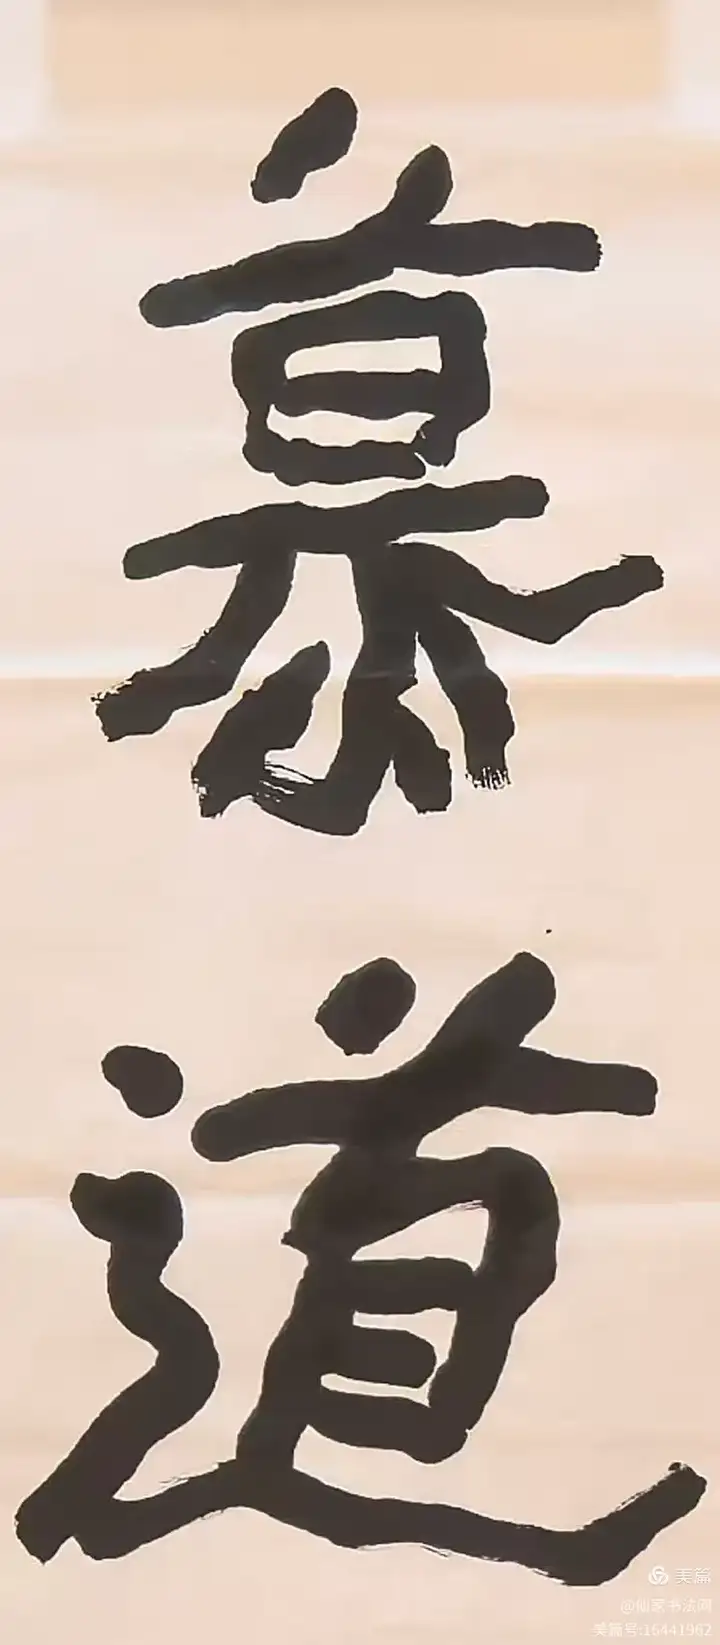 慕道
美篇
@仙家书法网
美篇号:16441962